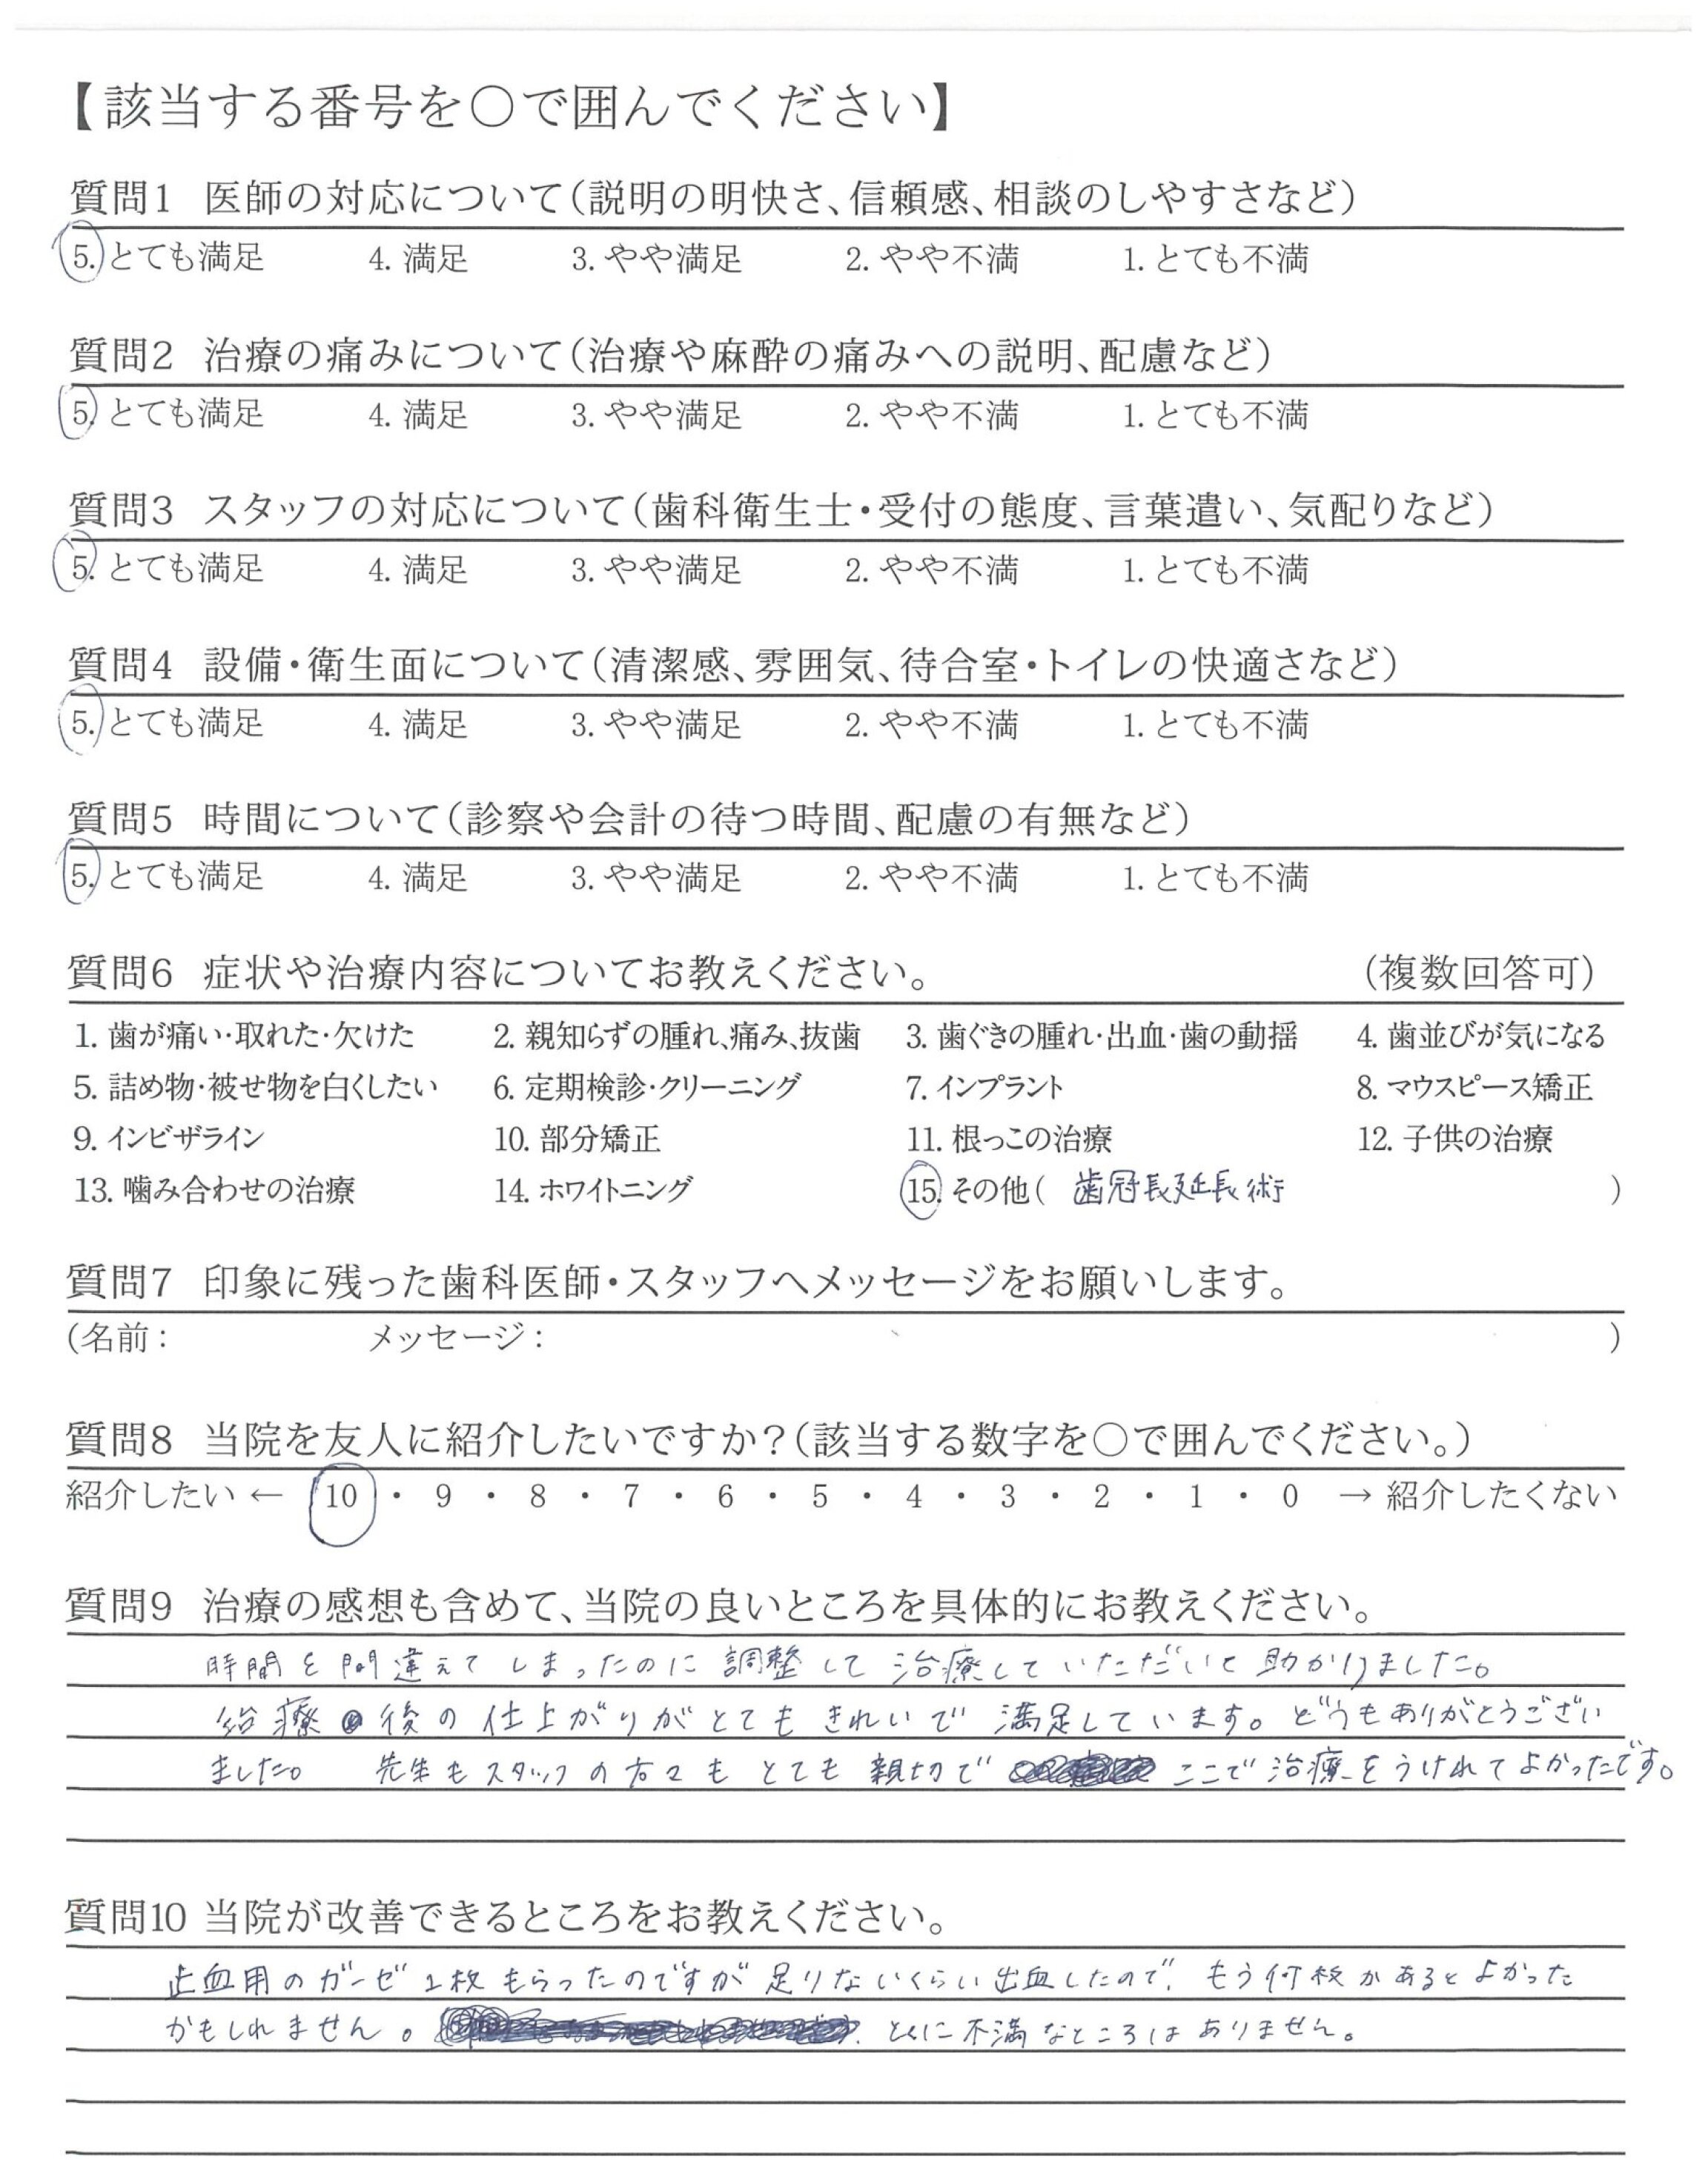 【該当する番号を〇で囲んでください】
質問1 医師の対応について(説明の明快さ、信頼感、相談のしやすさなど)
5. とても満足 4. 満足 3. やや満足 2. やや不満 1. とても不満
質問2 治療の痛みについて(治療や麻酔の痛みへの説明、配慮など)
5. とても満足 4. 満足 3. やや満足 2. やや不満 1. とても不満
質問3 スタッフの対応について(歯科衛生士・受付の態度、言葉遣い、気配りなど)
5. とても満足 4. 満足 3. やや満足 2. やや不満 1. とても不満
質問4 設備・衛生面について(清潔感、雰囲気、待合室・トイレの快適さなど)
5. とても満足 4. 満足 3. やや満足 2. やや不満 1. とても不満
質問5 時間について(診察や会計の待つ時間、配慮の有無など)
5. とても満足 4. 満足 3. やや満足 2. やや不満 1. とても不満
質問6 症状や治療内容についてお教えください。 (複数回答可)
1. 歯が痛い・取れた・欠けた 2. 親知らずの腫れ、痛み、抜歯 3. 歯ぐきの腫れ・出血・歯の動揺 4. 歯並びが気になる
5. 詰め物・被せ物を白くしたい 6. 定期検診・クリーニング 7. インプラント 8. マウスピース矯正
9. インビザライン 10. 部分矯正 11. 根っこの治療 12. 子供の治療
13. 噛み合わせの治療 14. ホワイトニング 15. その他( 歯冠長延長術 )
質問7 印象に残った歯科医師・スタッフへメッセージをお願いします。
(名前: メッセージ: )
質問8 当院を友人に紹介したいですか?(該当する数字を〇で囲んでください。)
紹介したい ← 10 ・ 9 ・ 8 ・ 7 ・ 6 ・ 5 ・ 4 ・ 3 ・ 2 ・ 1 ・ 0 → 紹介したくない
質問9 治療の感想も含めて、当院の良いところを具体的にお教えください。
時間を間違えてしまったのに調整して治療していただいて助かりました。
治療後の仕上がりがとてもきれいで満足しています。どうもありがとうござい
ました。 先生もスタッフの方々もとても親切で ここで治療をうけれてよかったです。
質問10 当院が改善できるところをお教えください。
止血用のガーゼ1枚もらったのですが足りないくらい出血したので、もう何枚かあるとよかった
かもしれません。 とくに不満なところはありません。